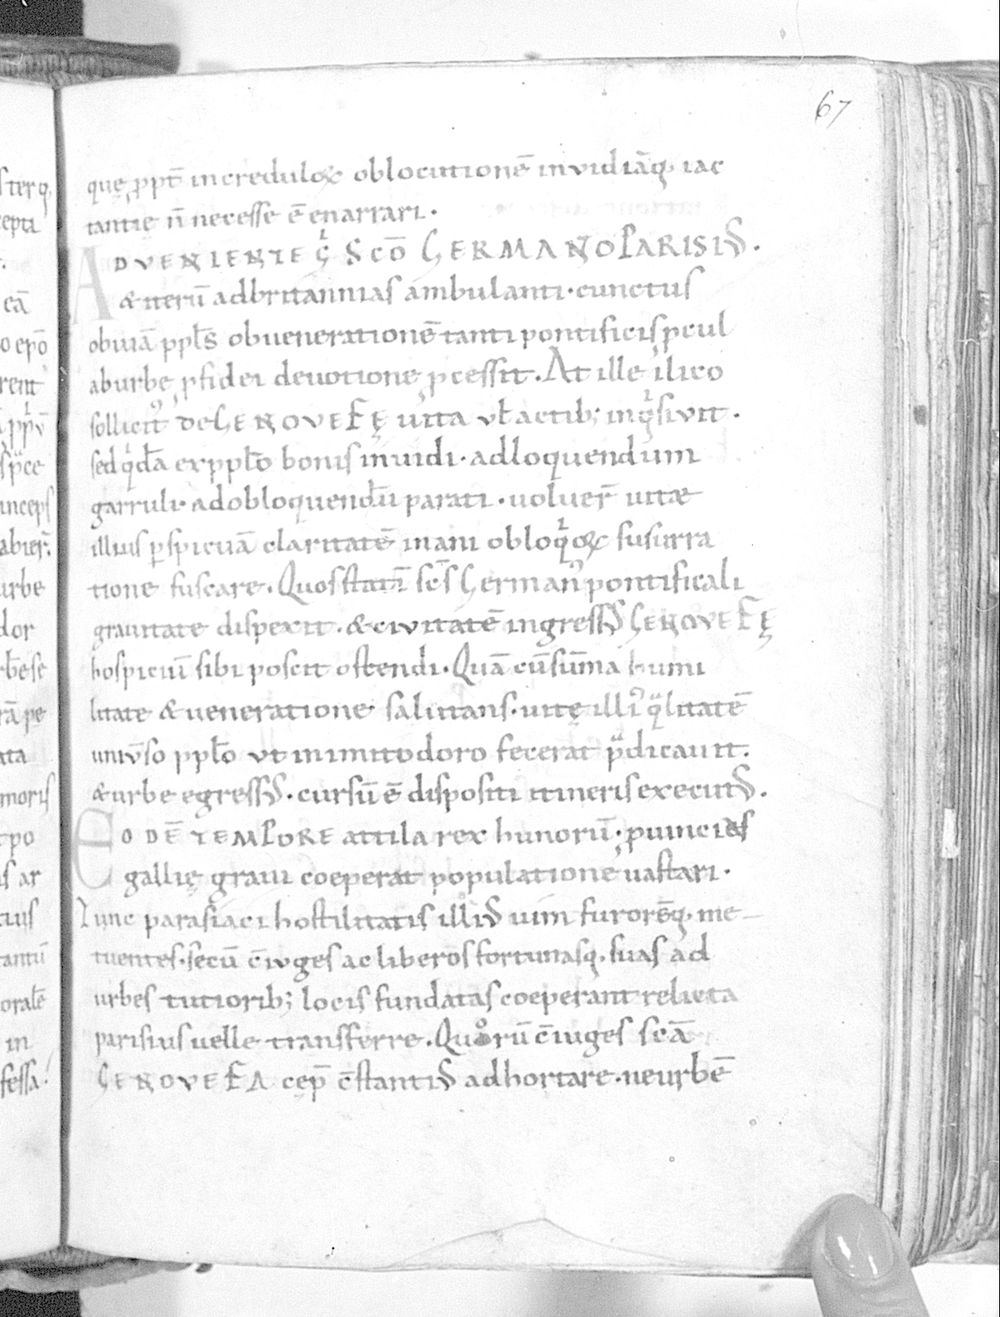 67
quę ꝓpt̄ increduloꝝ oblocutionē inuidiāq; iac
tantię n̄ necesse ē enarrari.
ADVENIENTE g̍ SCŌ GERMANO PARISIUS.
& iterū ad britannias ambulanti. cunctus
obuiā ppl̄s ob uenerationē tanti pontificis ꝓcul
ab urbe ꝓ fidei deuotione ꝓcessit. At ille ilico
sollicit᷒ de GENOVEFĘ uita ul̄ actib; inq̍siuit.
sed q̍dā ex ppl̄o bonis inuidi. ad loquendum
garruli. ad obloquendū parati. uoluer̄ uitæ
illius ꝑspicuā claritatē inani obloq̍oꝝ susurra
tione fuscare. Quos statī sc̄s German᷒ pontificali
grauitate dispexit. & ciuitatē ingressus GENOVEFĘ
hospiciū sibi poscit ostendi. Quā cū sūma humi
litate & ueneratione salutans. uitę illi᷒ qͣlitatē
uniūso ppl̄o ut inimito doro fecerat pͣdicauit.
& urbe egressus. cursū ē dispositi itineris executus.
EODĒ TEMPORE attila rex hunorū. ꝓuincias
gallię graui coeperat populatione uastari.
Tunc parasiaci hostilitatis illius uim furorēq; me
tuentes. secū c̄iuges ac liberos fortunasq; suas ad
urbes tutiorib; locis fundatas coeperant relicta
parisius uelle transferre. Quorū c̄iuges sc̄a
GENOVEFA cep̄ c̄stantius adhortare. ne urbē